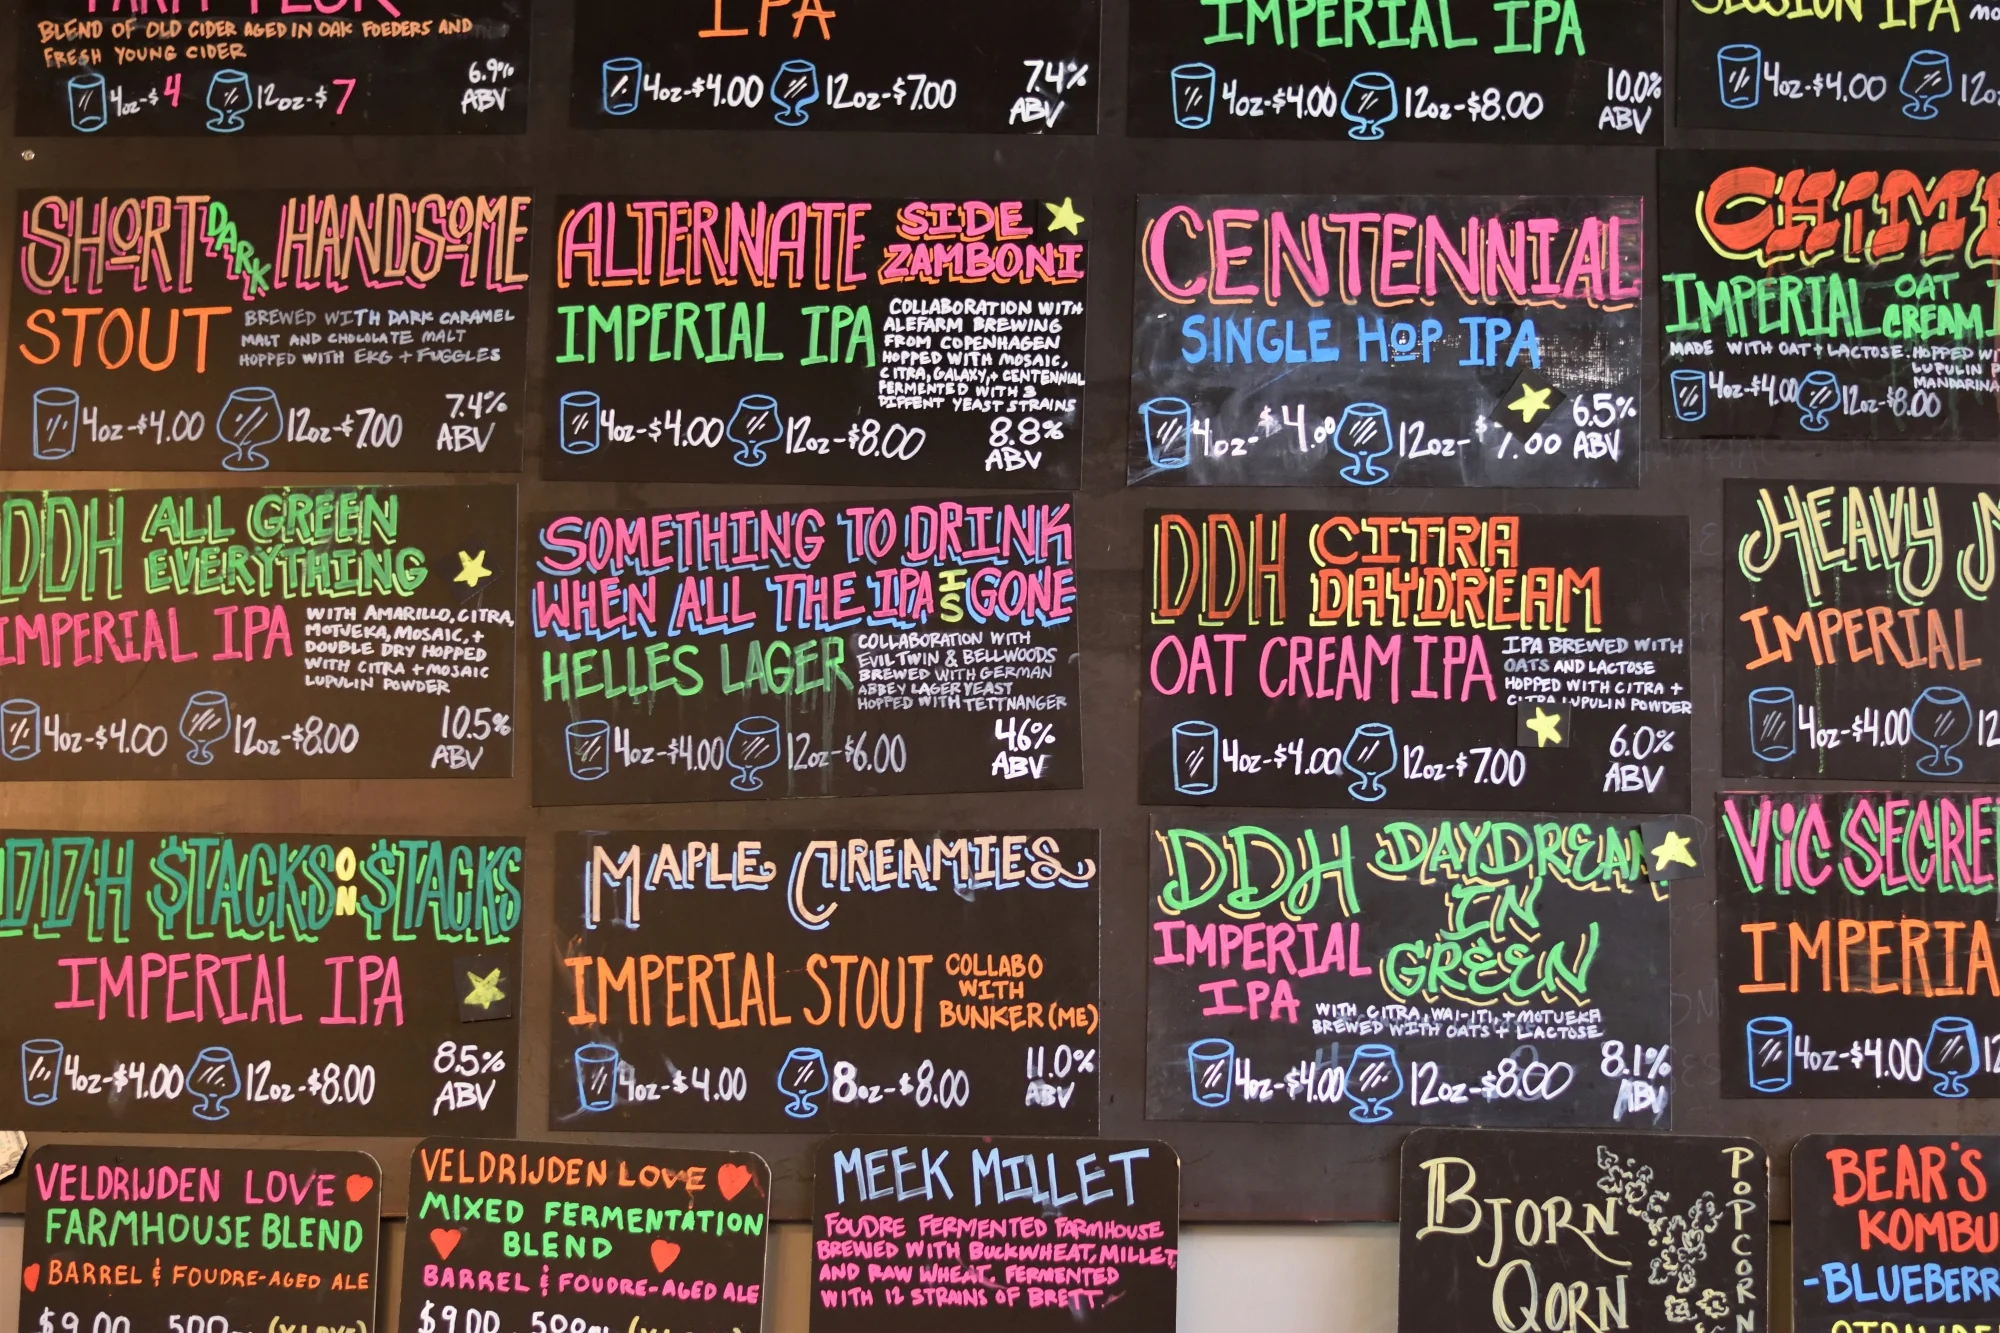 BLEND OF OLD CIDER AGED IN OAK FOEDERS AND
FRESH YOUNG CIDER
4oz-$4 12oz-$7
6.9%
ABV
IPA
4oz-$4.00 12oz-$7.00
7.4%
ABV
IMPERIAL IPA
4oz-$4.00 12oz-$8.00
10.0%
ABV
SESSION IPA
4oz-$4.00
SHORT DARK HANDSOME
STOUT
BREWED WITH DARK CARAMEL
MALT AND CHOCOLATE MALT
HOPPED WITH EKG + FUGGLES
4oz-$4.00 12oz-$7.00
7.4%
ABV
ALTERNATE SIDE
ZAMBONI
IMPERIAL IPA
COLLABORATION WITH
ALEFARM BREWING
FROM COPENHAGEN
HOPPED WITH MOSAIC,
CITRA, GALAXY, + CENTENNIAL
FERMENTED WITH 3
DIFFENT YEAST STRAINS
4oz-$4.00 12oz-$8.00
8.8%
ABV
CENTENNIAL
SINGLE HOP IPA
4oz-$4.00 12oz-$7.00
6.5%
ABV
IMPERIAL OAT
CREAM
MADE WITH OAT + LACTOSE. HOPPED
LUPULIN
4oz-$4.00 12oz-$8.00
DDH ALL GREEN
EVERYTHING
IMPERIAL IPA
WITH AMARILLO, CITRA,
MOTUEKA, MOSAIC, +
DOUBLE DRY HOPPED
WITH CITRA + MOSAIC
LUPULIN POWDER
4oz-$4.00 12oz-$8.00
10.5%
ABV
SOMETHING TO DRINK
WHEN ALL THE IPA IS GONE
HELLES LAGER
COLLABORATION WITH
EVIL TWIN & BELLWOODS
BREWED WITH GERMAN
ABBEY LAGER YEAST
HOPPED WITH TETTNANGER
4oz-$4.00 12oz-$6.00
4.6%
ABV
DDH CITRA
DAYDREAM
OAT CREAM IPA
IPA BREWED WITH
OATS AND LACTOSE
HOPPED WITH CITRA +
CITRA LUPULIN POWDER
4oz-$4.00 12oz-$7.00
6.0%
ABV
HEAVY
IMPERIAL
4oz-$4.00 12
DDH $TACKS ON $TACKS
IMPERIAL IPA
4oz-$4.00 12oz-$8.00
8.5%
ABV
MAPLE CREAMIES
IMPERIAL STOUT
COLLABO
WITH
BUNKER (ME)
4oz-$4.00 8oz-$8.00
11.0%
ABV
DDH DAYDREAM
IN
GREEN
IMPERIAL
IPA
WITH CITRA, WAI-ITI, + MOTUEKA
BREWED WITH OATS + LACTOSE
4oz-$4.00 12oz-$8.00
8.1%
ABV
VIC SECRE
IMPERIA
4oz-$4.00 12
VELDRIJDEN LOVE
FARMHOUSE BLEND
BARREL & FOUDRE-AGED ALE
VELDRIJDEN LOVE
MIXED FERMENTATION
BLEND
BARREL & FOUDRE-AGED ALE
MEEK MILLET
FOUDRE FERMENTED FARMHOUSE
BREWED WITH BUCKWHEAT, MILLET,
AND RAW WHEAT. FERMENTED
WITH 12 STRAINS OF BRETT.
BJORN
QORN
POPCORN
BEAR'S
KOMBU
-BLUEBERR